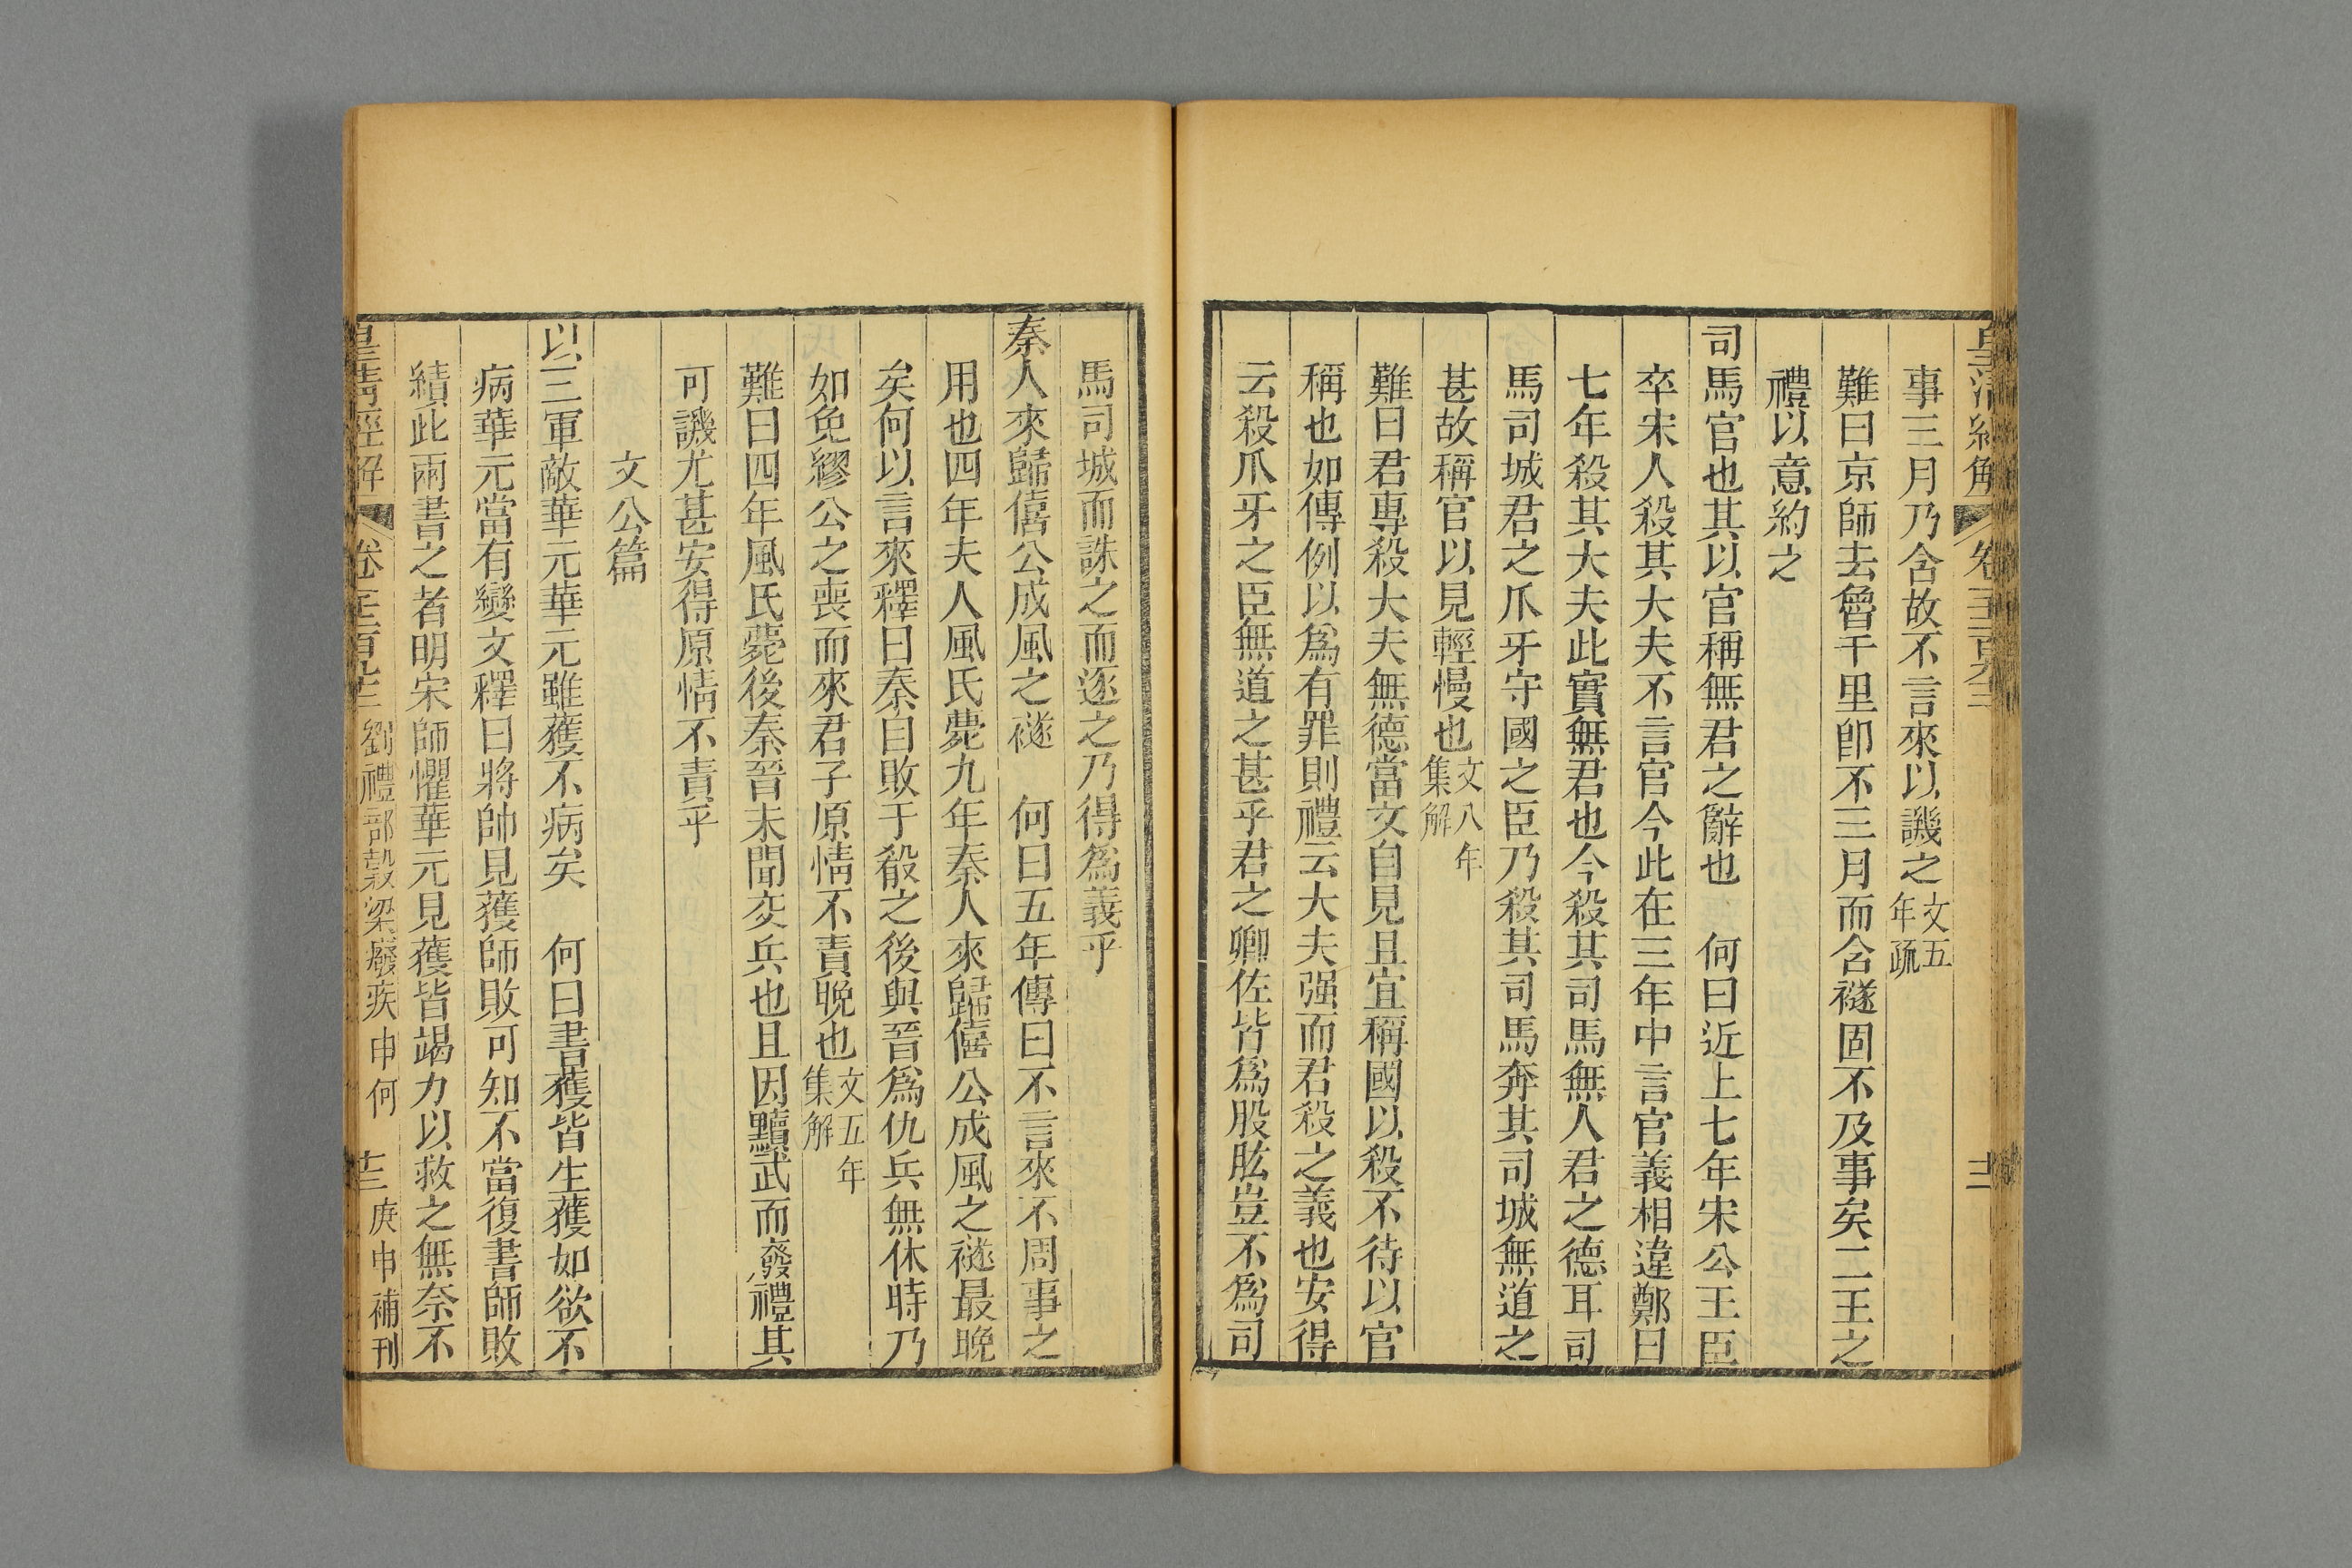 皇清經解 卷千二百九十三 十二
事三月乃含故不言來以譏之文五年疏
難曰京師去魯千里卽不三月而含襚固不及事矣二王之
禮以意約之
司馬官也其以官稱無君之辭也 何曰近上七年宋公王臣
卒宋人殺其大夫不言官今此在三年中言官義相違鄭曰
七年殺其大夫此實無君也今殺其司馬無人君之德耳司
馬司城君之爪牙守國之臣乃殺其司馬奔其司城無道之
甚故稱官以見輕慢也文八年集解
難曰君專殺大夫無德當文自見且宜稱國以殺不待以官
稱也如傳例以爲有罪則禮云大夫强而君殺之義也安得
云殺爪牙之臣無道之甚乎君之卿佐皆爲股肱豈不爲司
馬司城而誅之而逐之乃得爲義乎
秦人來歸僖公成風之襚 何曰五年傳曰不言來不周事之
用也四年夫人風氏薨九年秦人來歸僖公成風之襚最晚
矣何以言來釋曰秦自敗于殽之後與晉爲仇兵無休時乃
如免繆公之喪而來君子原情不責晚也文五年集解
難曰四年風氏薨後秦晉未聞交兵也且因黷武而廢禮其
可譏尤甚安得原情不責乎
文公篇
以三軍敵華元華元雖獲不病矣 何曰書獲皆生獲如欲不
病華元當有變文釋曰將帥見獲師敗可知不當復書師敗
績此兩書之者明宋師懼華元見獲皆竭力以救之無奈不
皇清經解 卷千二百九十三 劉禮部穀梁癈疾申何 十三 庚申補刊